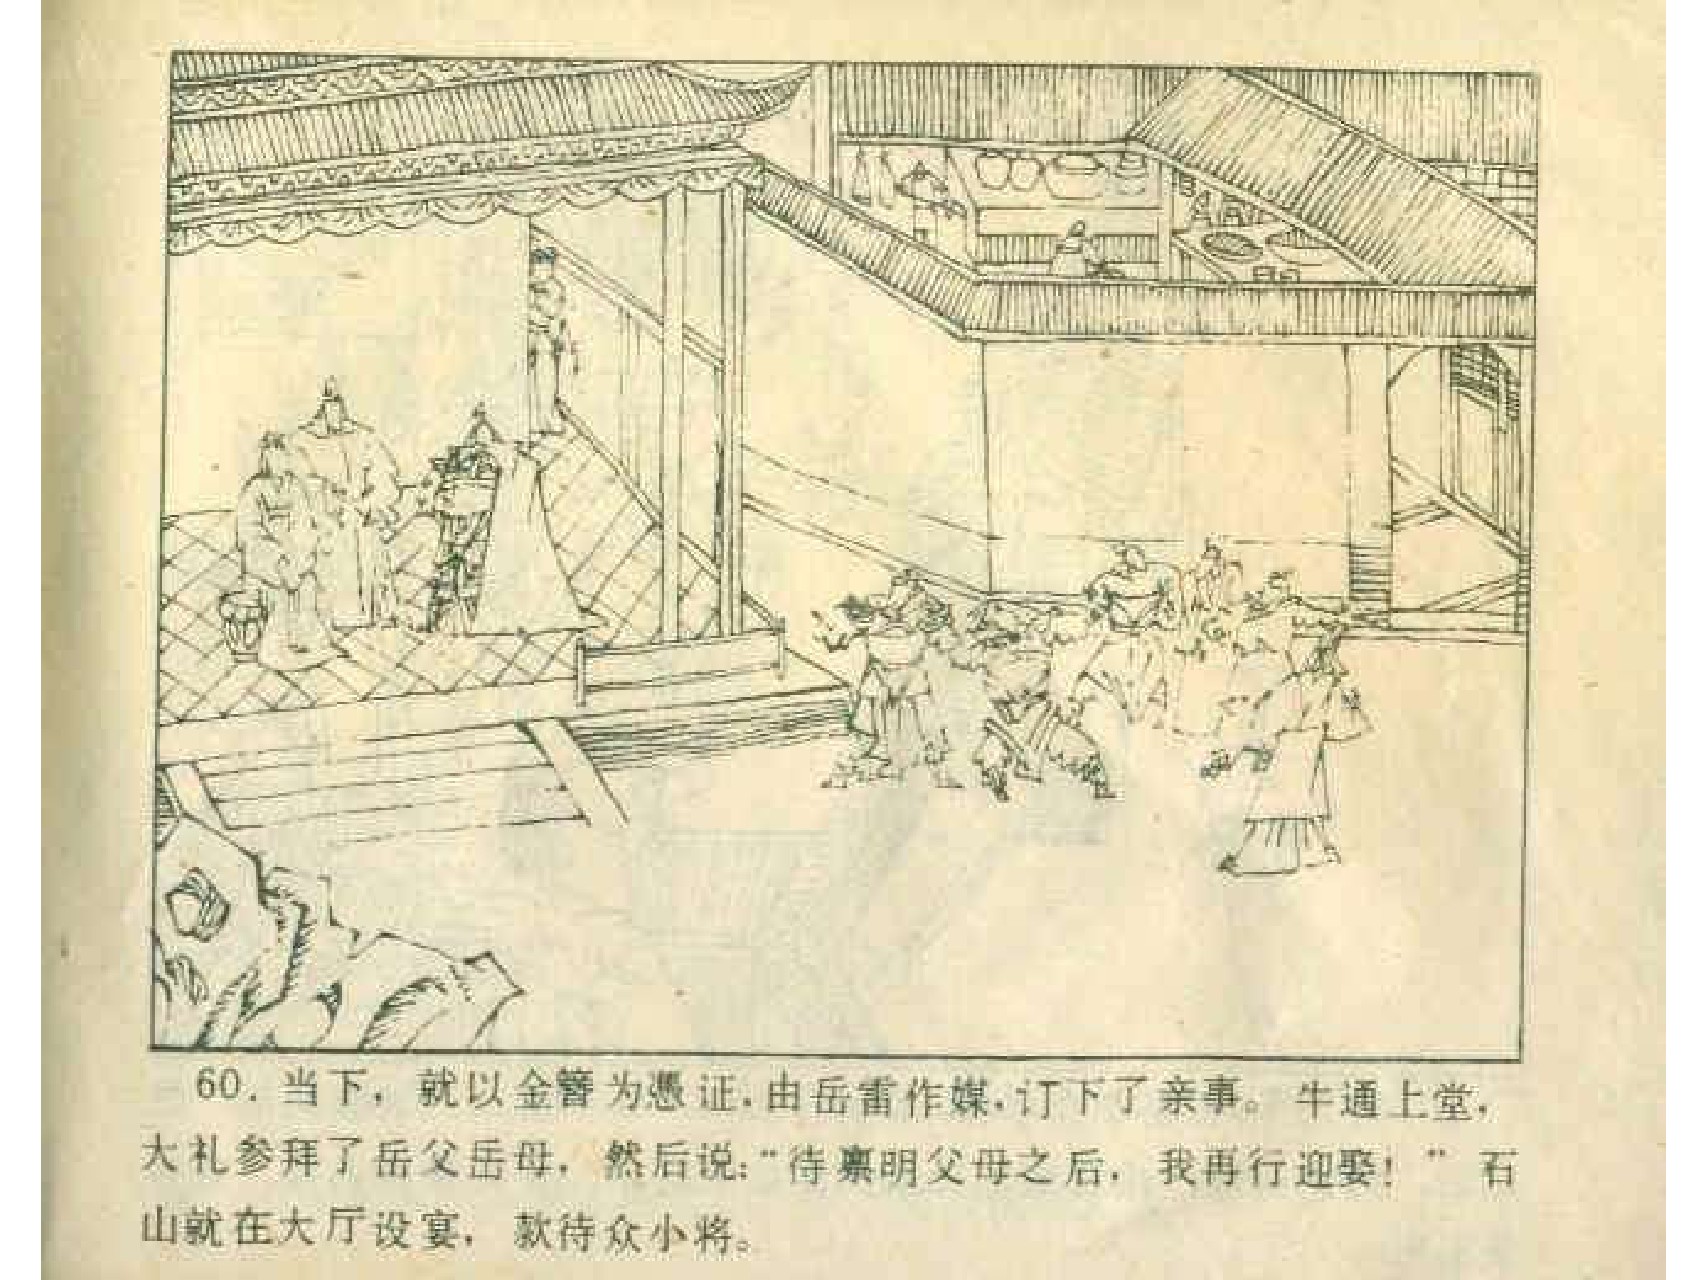 60. 当下，就以金簪为凭证，由岳雷作媒，订下了亲事。牛通上堂，
大礼参拜了岳父岳母，然后说：“待禀明父母之后，我再行迎娶！”石
山就在大厅设宴，款待众小将。